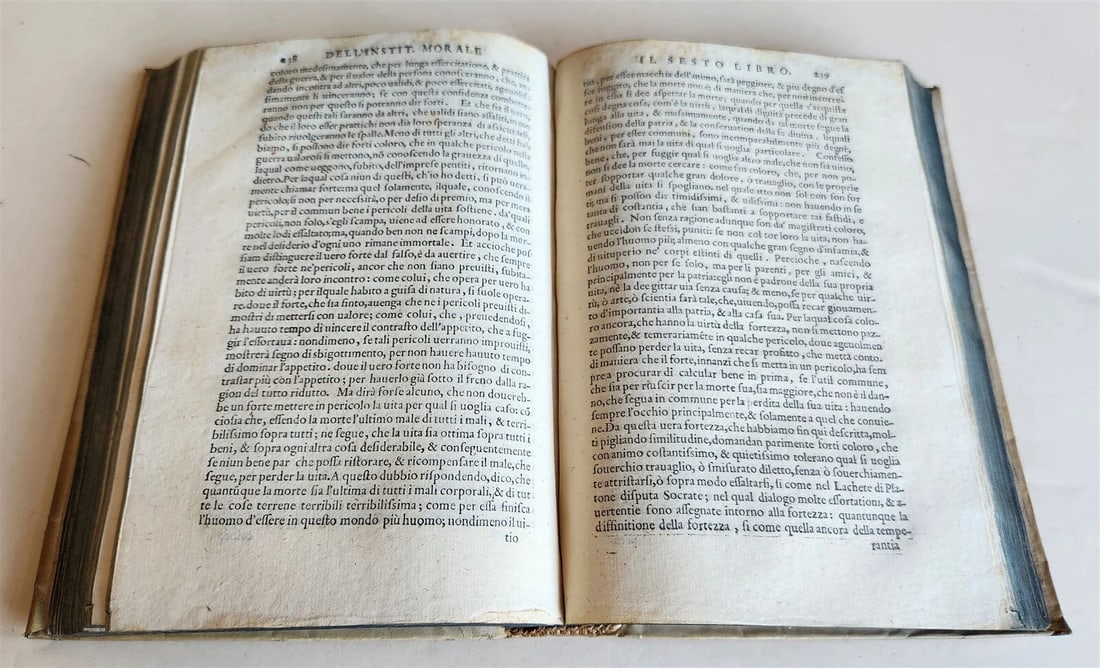 238 DELL'INSTIT. MORALE
coloro medesimamente, che per lunga essercitatione, & pratica
della guerra, & per il valor della persona conosceranno, che, an-
dando incontra ad altri, poco ualidi, & poco essercitati, ageuolis-
simamente li uinceranno; se con questa confidenza combatte-
ranno non per questo si potranno dir forti. Et che sia il uero,
quando questi tali saranno da altri, che ualidi siano assaliti, in mo-
do che il loro esser prattichi non dia loro speranza di assicurarsi,
subito riuolgeranno le spalle. Meno di tutti gli altri, che detti hab-
biamo, si possono dir forti coloro, che in qualche pericolo nella
guerra ualorosi si mettono, nõ conoscendo la grauezza di quello;
laqual come ueggono, subito, dell'imprese pentiti, ritornano in-
dietro. Per laqual cosa niun di questi, ch'io ho detti, si può uera-
mente chiamar forte: ma quel solamente, ilquale, conoscendo il
pericolo, si non per necessità, o per desio di premio, ma per mera
uirtù, per il commun bene i pericoli della uita sostiene. da' quali
pericoli, non solo, s'egli scampa, uiene ad essere honorato, & con
molte lodi essaltato; ma, quando ben non ne scampi, dopo la mor-
te nel desiderio d'ogni uno rimane immortale. Et accioche pos
siam distinguere il uero forte dal falso, è da auertire, che sempre
il uero forte ne' pericoli, ancor che non siano preuisti, subita-
mente anderà loro incontro: come colui, che opera per uero ha
bito di uirtù; per ilquale habito a guisa di natura, si suole opera-
re. doue il forte, che sia finto, auenga che ne i pericoli preuisti di-
mostri di mettersi con ualore; come colui, che, preuedendosi,
ha hauuto tempo di uincere il contrasto dell'appetito, che a fug-
gir l'essortaua: nondimeno, se tali pericoli uerranno improuisi,
mostrerà segno di sbigottimento, per non hauere hauuto tempo
di dominar l'appetito. doue il uero forte non ha bisogno di con-
trastar più con l'appetito; per hauerlo già sotto il freno della ra-
gion del tutto ridutto. Ma dirà forse alcuno, che non douereb-
be un forte mettere in pericolo la uita per qual si uoglia caso: cõ
ciosia che, essendo la morte l'ultimo male di tutti i mali, & terri-
bilissimo sopra tutti; ne segue, che la uita sia ottima sopra tutti i
beni, & sopra ogni altra cosa desiderabile, & conseguentemente
se niun bene par che possa ristorare, & ricompensare il male, che
segue, per perder la uita. A questo dubbio rispondendo, dico, che
quantũque la morte sia l'ultima di tutti i mali corporali, & di tut
te le cose terrene terribili terribilissima; come per essa finisca
l'huomo d'essere in questo mondo più huomo; nondimeno il ui-
tio
IL SESTO LIBRO. 239
tio, per esser macchia dell'animo, sarà peggiore, & piu degno d'es
ser fuggito, che la morte non è: di maniera che, per non incorre-
re in esso si dee aspettar la morte; quando per quella s'acquista
cosi degna cosa, com'è la uirtù, laqual di dignità precede di gran
lunga alla uita, & massimamente, quando da tal morte segue la
difension della patria, & la conseruation della fe diuina. liquali
beni, per esser communi, sono incomparabilmente più degni,
che non sarà mai la uita di qual si uoglia particolare. Confesso
bene, che, per fuggir qual si uoglia altro male, che non sia uitio,
non si dee la morte cercare: come fan coloro, che, per non po-
ter sopportar qualche gran dolore, ò trauaglio, con le proprie
mani della uita si spogliano. nel quale atto non sol non son for
ti, ma si posson dir timidissimi, & uilissimi: non hauendo in se
tanta di costantia, che sian bastanti a sopportare tai fastidi, e
trauagli. Non senza ragione adunque son da' magistrati coloro,
che uccidon se stessi, puniti: se non col tor loro la uita, non ha-
uendo l'huomo più; almeno con qualche gran segno d'infamia, &
di uituperio ne' corpi estinti di quelli. Percioche, nascendo
l'huomo, non per se solo, ma per li parenti, per gli amici, &
principalmente per la patria: egli non è padrone della sua propria
uita, nè la dee gittar uia senza causa; & meno, se per qualche uir-
tù, ò arte, ò scientia sarà tale, che, uiuendo, possa recar giouamen-
to d'importantia alla patria, & alla casa sua. Per laqual cosa colo-
ro ancora, che hanno la uirtù della fortezza, non si mettono paz-
zamente, & temerariamẽte in qualche pericolo, doue ageuolmen
te possano perder la uita, senza recar profitto, che metta conto.
di maniera che il forte, innanzi che si metta in un pericolo, ha sem
pre a procurar di calcular bene in prima, se l'util commune,
che sia per riuscir per la morte sua, sia maggiore, che non è il dan-
no, che segua in commune per la perdita della sua uita: hauendo
sempre l'occhio principalmente, & solamente a quel che conuie-
ne. Da questa uera fortezza, che habbiamo fin quì descritta, mol-
ti pigliando similitudine, domandan parimente forti coloro, che
con animo costantissimo, & quietissimo tolerano qual si uoglia
souerchio trauaglio, ò smisurato diletto, senza ò souerchiamen-
te attristarsi, ò sopra modo essaltarsi, si come nel Lachete di Pla-
tone disputa Socrate; nel qual dialogo molte essortationi, & a-
uertentie sono assegnate intorno alla fortezza: quantunque la
diffinitione della fortezza, si come quella ancora della tempe-
rantia